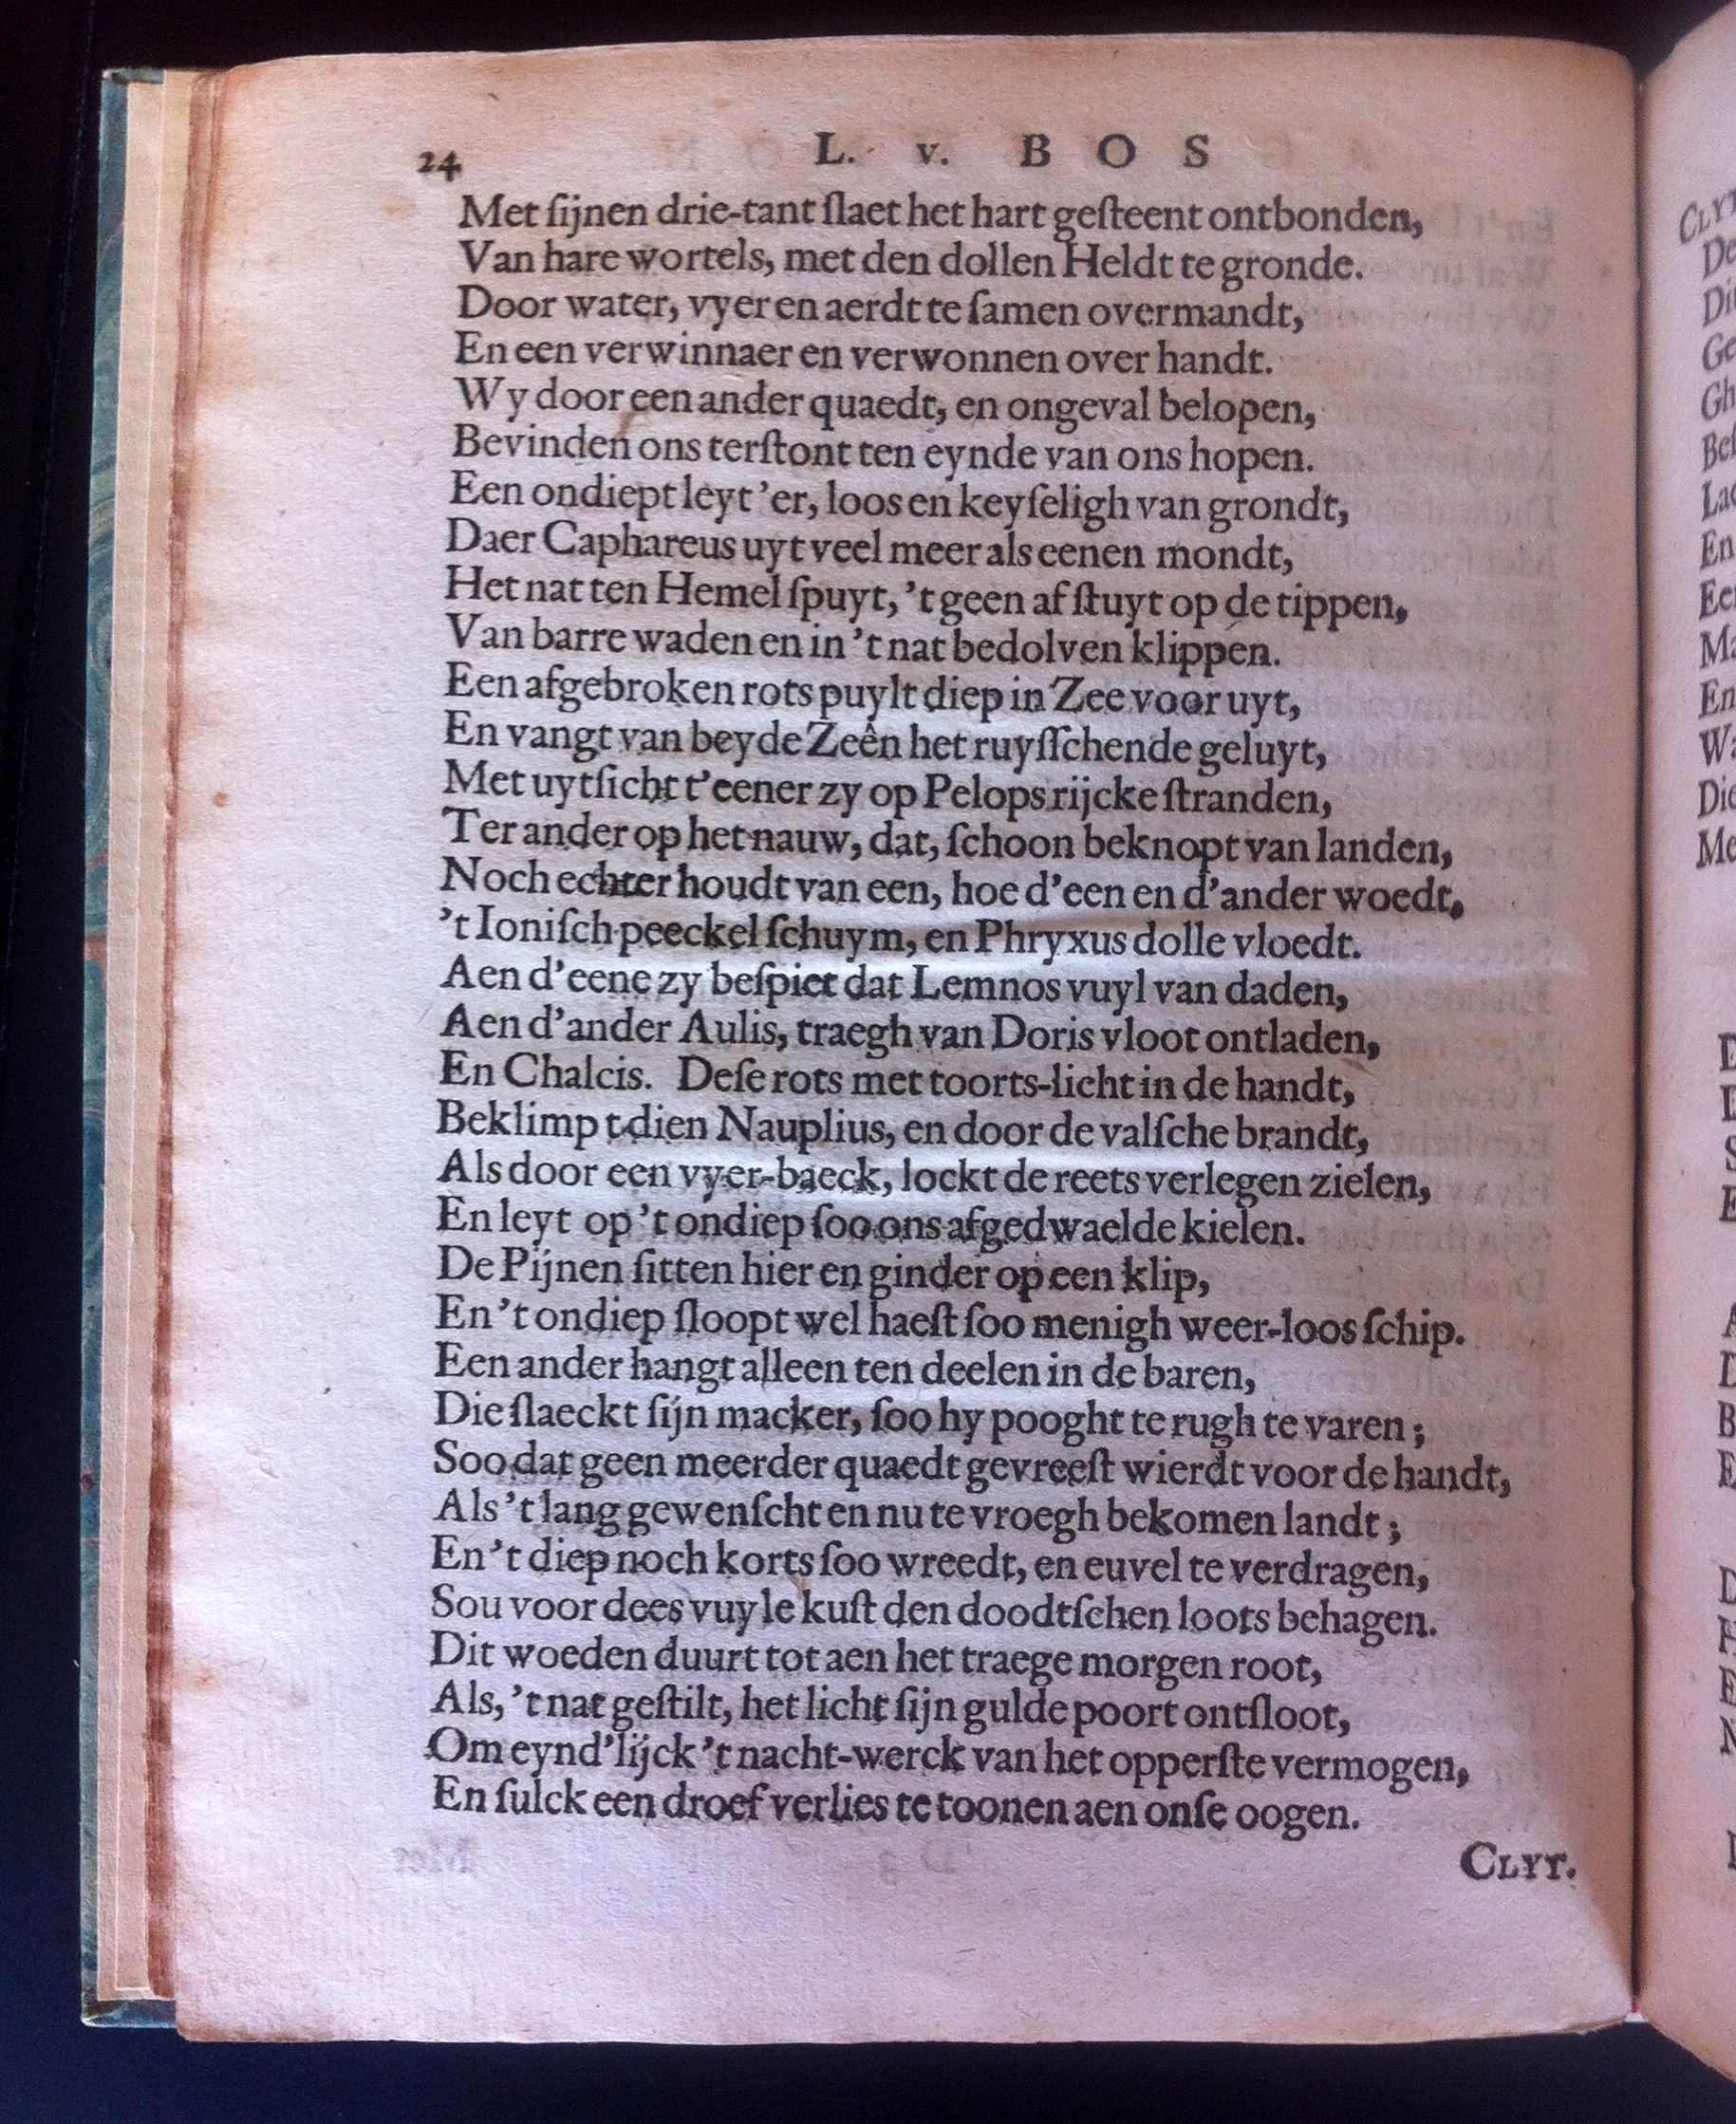 24 L. v. B O S
Met ſijnen drie-tant ſlaet het hart geſteent ontbonden,
Van hare wortels, met den dollen Heldt te gronde.
Door water, vyer en aerdt te ſamen overmandt,
En een verwinnaer en verwonnen over handt.
Wy door een ander quaedt, en ongeval belopen,
Bevinden ons terſtont ten eynde van ons hopen.
Een ondiept leyt 'er, loos en keyſeligh van grondt,
Daer Caphareus uyt veel meer als eenen mondt,
Het nat ten Hemel ſpuyt, 't geen af ſtuyt op de tippen,
Van barre waden en in 't nat bedolven klippen.
Een afgebroken rots puylt diep in Zee voor uyt,
En vangt van beyde Zeên het ruyſſchende geluyt,
Met uytſicht t'eener zy op Pelops rijcke ſtranden,
Ter ander op het nauw, dat, ſchoon beknopt van landen,
Noch echter houdt van een, hoe d'een en d'ander woedt,
't Ioniſch peeckel ſchuym, en Phryxus dolle vloedt.
Aen d'eene zy beſpiet dat Lemnos vuyl van daden,
Aen d'ander Aulis, traegh van Doris vloot ontladen,
En Chalcis. Deſe rots met toorts-licht in de handt,
Beklimp t dien Nauplius, en door de valſche brandt,
Als door een vyer-baeck, lockt de reets verlegen zielen,
En leyt op 't ondiep ſoo ons afgedwaelde kielen.
De Pijnen ſitten hier en ginder op een klip,
En 't ondiep ſloopt wel haeſt ſoo menigh weer-loos ſchip.
Een ander hangt alleen ten deelen in de baren,
Die ſlaeckt ſijn macker, ſoo hy pooght te rugh te varen;
Soo dat geen meerder quaedt gevreeſt wierdt voor de handt,
Als 't lang gewenſcht en nu te vroegh bekomen landt;
En 't diep noch korts ſoo wreedt, en euvel te verdragen,
Sou voor dees vuyle kuſt den doodtſchen loots behagen.
Dit woeden duurt tot aen het traege morgen root,
Als, 't nat geſtilt, het licht ſijn gulde poort ontſloot,
Om eynd'lijck 't nacht-werck van het opperſte vermogen,
En ſulck een droef verlies te toonen aen onſe oogen.
CLYT.